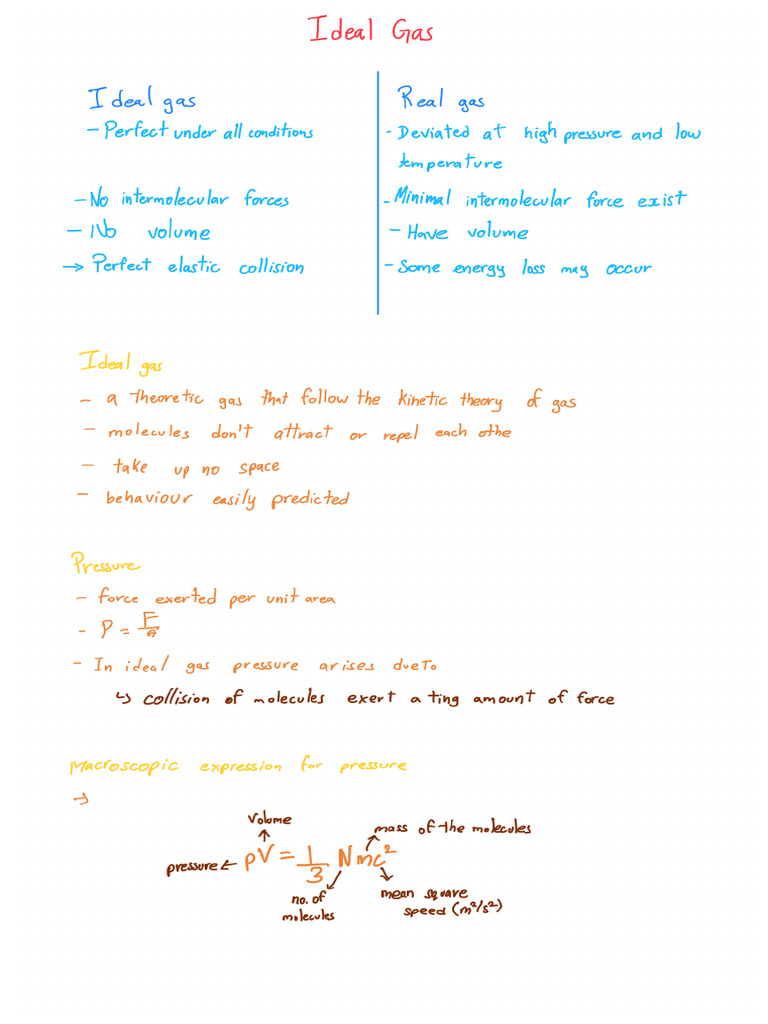 Ideal Gas
Ideal gas
- Perfect under all conditions
- No intermolecular forces
- No volume
→ Perfect elastic collision
Real gas
- Deviated at high pressure and low
temperature
- Minimal intermolecular force exist
- Have volume
- Some energy loss may occur
Ideal gas
- a theoretic gas that follow the kinetic theory of gas
- molecules don't attract or repel each othe
- take up no space
- behaviour easily predicted
Pressure
- force exerted per unit area
- P = F/A
- In ideal gas pressure arises due to
↳ collision of molecules exert a ting amount of force
Macroscopic expression for pressure
→
volume
mass of the molecules
pressure ← pV = 1/3 Nmc²
no. of
molecules
mean square
speed (m²/s²)